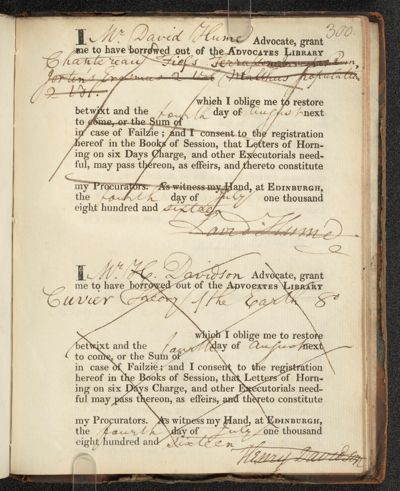 300
I Mr. David Hume Advocate, grant
me to have borrowed out of the ADVOCATES LIBRARY
Chantereau Fiefs Terra
Jortin's Erasmus 2 vols Malthus population
2 vols.
which I oblige me to restore
betwixt and the fourth day of August next
to come, or the Sum of
in case of Failzie; and I consent to the registration
hereof in the Books of Session, that Letters of Horn-
ing on six Days Charge, and other Executorials need-
ful, may pass thereon, as effeirs, and thereto constitute
my Procurators. As witness my Hand, at EDINBURGH,
the fourth day of July one thousand
eight hundred and sixteen
David Hume
I Mr. H. Davidson Advocate, grant
me to have borrowed out of the ADVOCATES LIBRARY
Cuvier Theory of the Earth 8o
which I oblige me to restore
betwixt and the fourth day of August next
to come, or the Sum of
in case of Failzie; and I consent to the registration
hereof in the Books of Session, that Letters of Horn-
ing on six Days Charge, and other Executorials need-
ful may pass thereon, as effeirs, and thereto constitute
my Procurators. As witness my Hand, at EDINBURGH,
the fourth day of July one thousand
eight hundred and sixteen
Henry Davidson